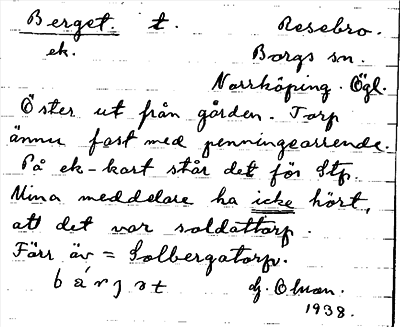 Berget. t. Resebro.
ek. Borgs sn.
Norrköping. Ögl.
Öster ut från gården. Torp
ännu fast med penningarrende.
På ek-kart står det för Stp.
Mina meddelare ha icke hört,
att det var soldattorp.
Förr äv = Solbergatorp.
1938.